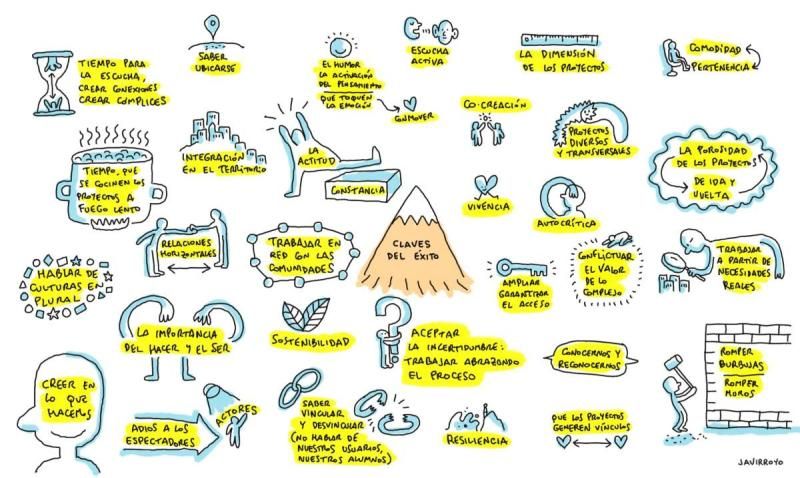 TIEMPO PARA
LA ESCUCHA,
CREAR CONEXIONES
CREAR COMPLICES
SABER
UBICARSE
EL HUMOR
LA ACTIVACIÓN
DEL PENSAMIENTO
QUE TOQUEN
LA EMOCIÓN
CONMOVER
ESCUCHA
ACTIVA
LA DIMENSIÓN
DE LOS PROYECTOS
COMODIDAD
PERTENENCIA
TIEMPO, QUE
SE COCINEN LOS
PROYECTOS A
FUEGO LENTO
INTEGRACIÓN
EN EL TERRITORIO
LA
ACTITUD
CONSTANCIA
CO-CREACIÓN
PROYECTOS
DIVERSOS
Y TRANSVERSALES
LA POROSIDAD
DE LOS PROYECTOS
DE IDA Y
VUELTA
VIVENCIA
AUTOCRÍTICA
HABLAR DE
CULTURAS EN
PLURAL
RELACIONES
HORIZONTALES
TRABAJAR EN
RED CON LAS
COMUNIDADES
CLAVES
DEL ÉXITO
AMPLIAR
GARANTIZAR
EL ACCESO
CONFLICTUAR
EL VALOR
DE LO
COMPLEJO
TRABAJAR
A PARTIR DE
NECESIDADES
REALES
LA IMPORTANCIA
DEL HACER Y EL SER
SOSTENIBILIDAD
ACEPTAR
LA INCERTIDUMBRE:
TRABAJAR ABRAZANDO
EL PROCESO
CONOCERNOS Y
RECONOCERNOS
ROMPER
BURBUJAS
ROMPER
MUROS
CREER EN
LO QUE
HACEMOS
ADIOS A LOS
ESPECTADORES
ACTORES
SABER
VINCULAR
Y DESVINCULAR
(NO HABLAR DE
NUESTROS USUARIOS,
NUESTROS ALUMNOS)
RESILIENCIA
QUE LOS PROYECTOS
GENEREN VÍNCULOS
JAVIRROYO